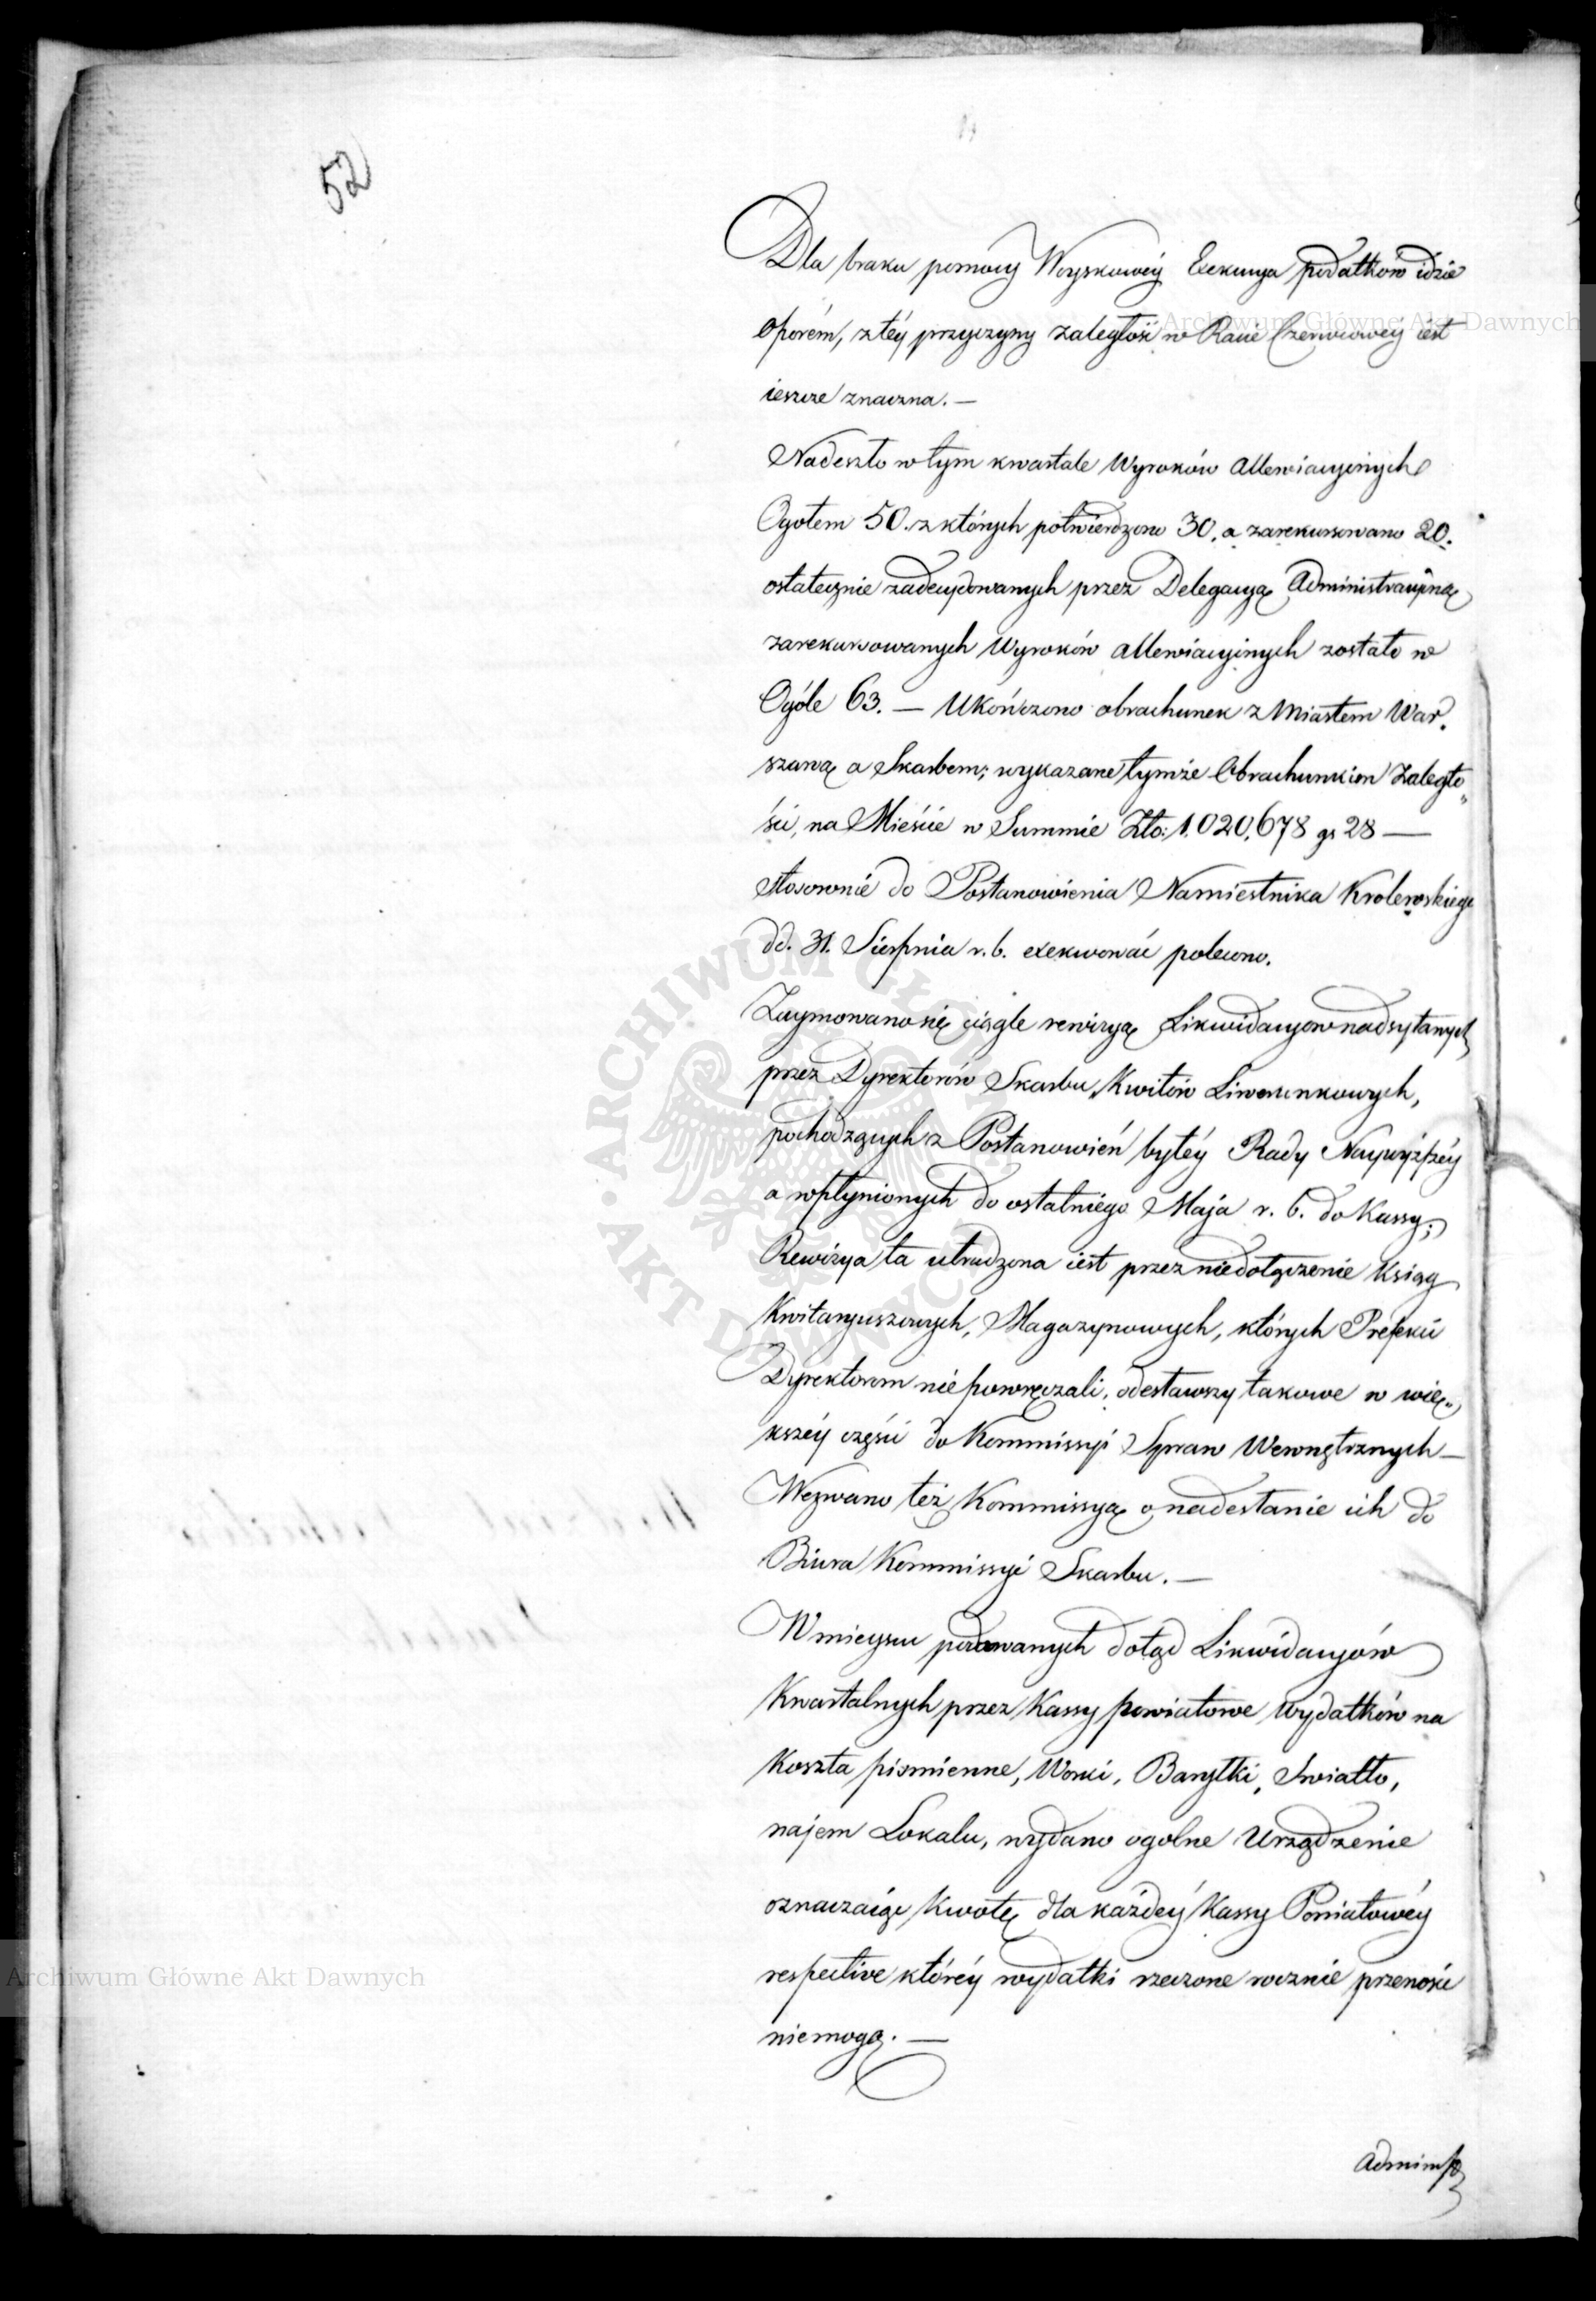 52
Dla braku pomocy Woyskowéy Exekucya podatków idzie
oporém, z téy przyczyny zaległość w Racie Czerwcowéy iest
ieszcze znaczna. —
Nadeszło w tym kwartale Wyroków allewiacyinych
Ogołem 50. z których potwierdzono 30, a zarekursowano 20.
ostatecznie zadecydowanych przez Delegacyą Administracyiną
zarekursowanych Wyroków allewiacyinych zostało w
Ogóle 63. — Ukończono obrachunek z Miastem War„
szawą a Skarbem; wykazane tymże Obrachunkiem Zaległo„
ści, na Mieście w Summie Złto: 1,020,678 gr 28 —
stosownie do Postanowienia Namiestnika Krolewskiego
dd. 31. Sierpnia r. b. exekwować polecono.
Zaymowano się ciągle rewizyą Likwidacyow nadsyłanych
przez Dyrektorów Skarbu, Kwitów Liwerunkowych,
pochodzących z Postanowień byłéy Rady Naywyższéy
a wpłynionych do ostatniego Maja r. b. do Kassy;
Rewizya ta utrudzona iest przez niedołączenie Ksiąg
Kwitaryuszowych, Magazynowych, których Prefekci
Dyrektorom nie powręczali, odesławszy takowe w wię„
kszéy części do Kommissyi Spraw Wewnętrznych —
Wezwano też Kommissyą o nadesłanie ich do
Biura Kommissyi Skarbu. —
W mieyscu podawanych dotąd Likwidacyów
Kwartalnych przez Kassy powiatowe wydatków na
Koszta pismienne, Worki, Baryłki, Swiatło,
najem Lokalu, wydano ogolne Urządzenie
oznaczaiąc Kwotę dla każdéy Kassy Powiatowéy
respective któréy wydatki rzeczone rocznie przenosić
niemogą. —
Administr
Archiwum Główne Akt Dawnych
Archiwum Główne Akt Dawnych
ARCHIWUM GŁÓWNE AKT DAWNYCH